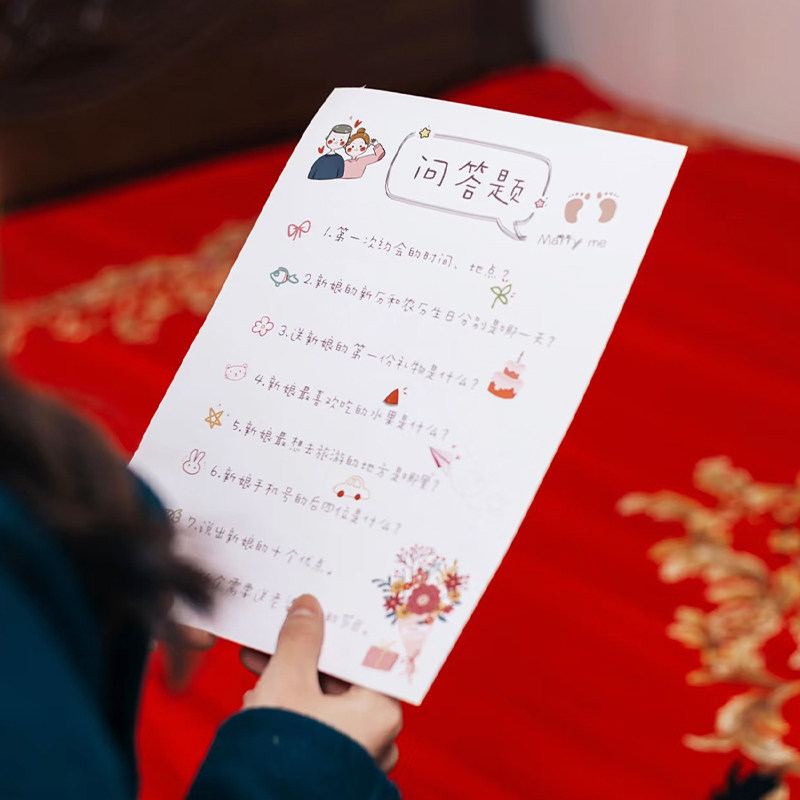 问答题
Marry me
1.第一次约会的时间、地点?
2.新娘的新历和农历生日分别是哪一天?
3.送新娘的第一份礼物是什么?
4.新娘最喜欢吃的水果是什么?
5.新娘最想去旅游的地方是哪里?
6.新娘手机号的后四位是什么?
7.说出新娘的十个优点。
个需要送老 的节日。